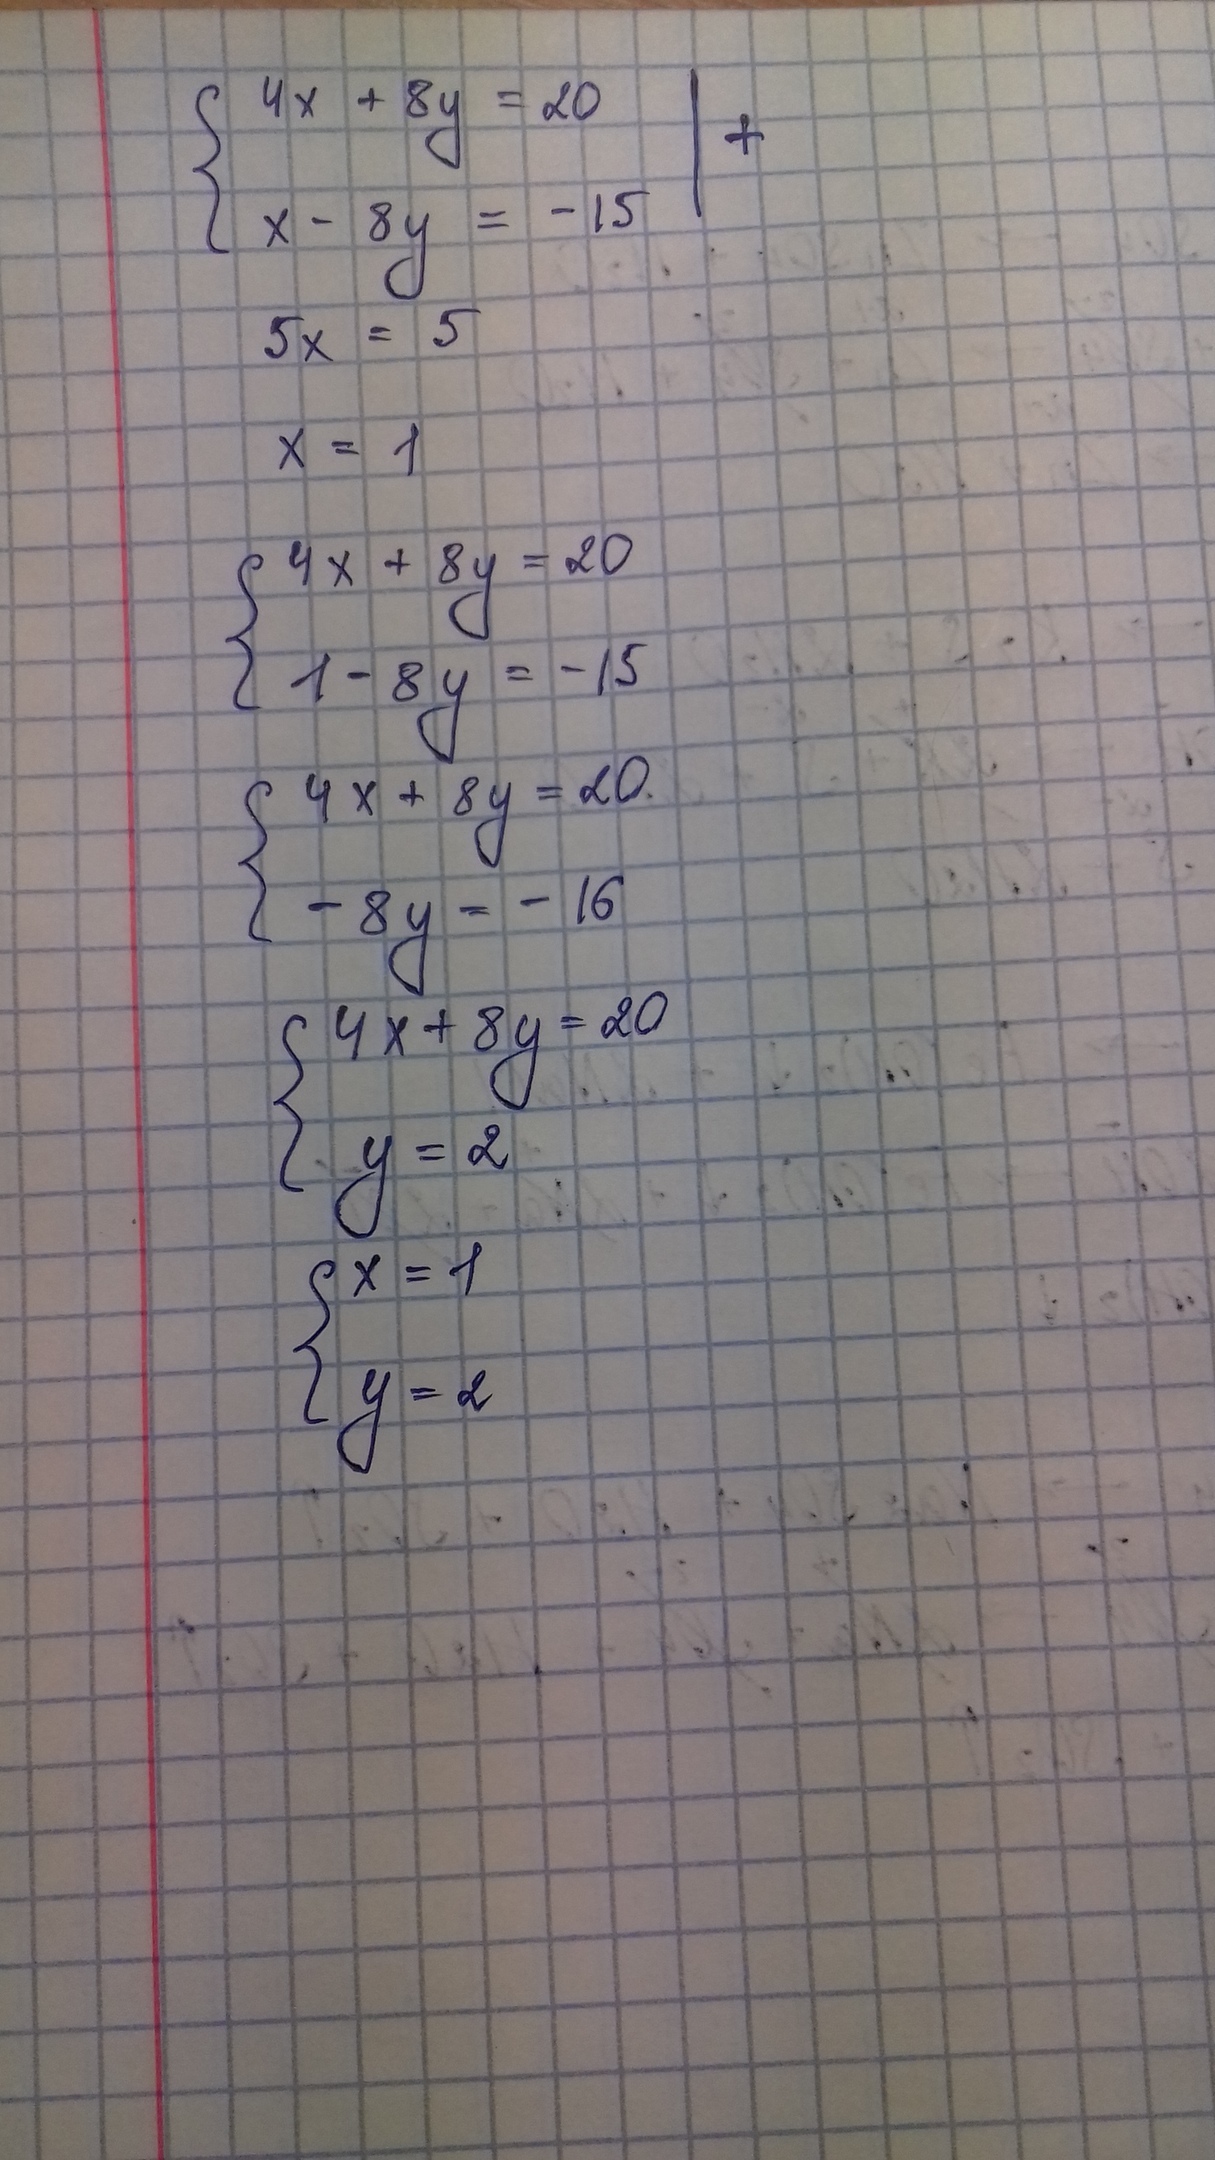 4x + 8y = 20 | +
x - 8y = -15
5x = 5
x = 1
4x + 8y = 20
1 - 8y = -15
4x + 8y = 20.
-8y = -16
4x + 8y = 20
y = 2
x = 1
y = 2